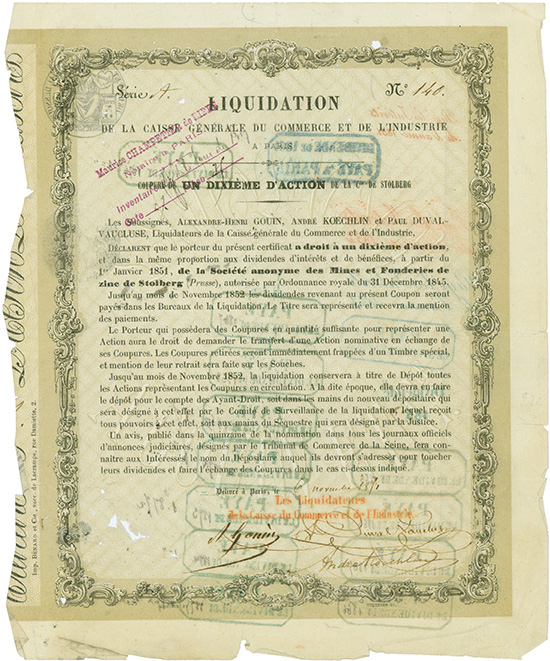 Série A. N° 140.
LIQUIDATION
DE LA CAISSE GÉNÉRALE DU COMMERCE ET DE L'INDUSTRIE
A PARIS
COUPURE DE UN DIXIÈME D'ACTION DE LA Cie DE STOLBERG
Les Soussignés, ALEXANDRE-HENRI GOUIN, ANDRÉ KOECHLIN et PAUL DUVAL-
VAUCLUSE, Liquidateurs de la Caisse générale du Commerce et de l'Industrie,
DÉCLARENT que le porteur du présent certificat a droit à un dixième d'action,
et dans la même proportion aux dividendes d'intérêts et de bénéfices, à partir du
1er Janvier 1851, de la Société anonyme des Mines et Fonderies de
zinc de Stolberg (Prusse), autorisée par Ordonnance royale du 31 Décembre 1845.
Jusqu'au mois de Novembre 1852 les dividendes revenant au présent Coupon seront
payés dans les Bureaux de la Liquidation. Le Titre sera représenté et recevra la mention
des paiements.
Le Porteur qui possèdera des Coupures en quantité suffisante pour représenter une
Action aura le droit de demander le transfert d'une Action nominative en échange de
ses Coupures. Les Coupures retirées seront immédiatement frappées d'un Timbre spécial,
et mention de leur retrait sera faite sur les Souches.
Jusqu'au mois de Novembre 1852, la liquidation conservera à titre de Dépôt toutes
les Actions représentant les Coupures en circulation. A la dite époque, elle devra en faire
le dépôt pour le compte des Ayant-Droit, soit dans les mains du nouveau dépositaire qui
sera désigné à cet effet par le Comité de Surveillance de la liquidation, lequel reçoit
tous pouvoirs à cet effet, soit aux mains du Séquestre qui sera désigné par la Justice.
Un avis, publié dans la quinzaine de la nomination dans tous les journaux officiels
d'annonces judiciaires, désignés par le Tribunal de Commerce de la Seine, fera con-
naître aux Intéressés le nom du Dépositaire auquel ils devront s'adresser pour toucher
leurs dividendes et faire l'échange des Coupures dans le cas ci-dessus indiqué.
Délivré à Paris, novembre
Les Liquidateurs
de la Caisse du Commerce et de l'Industrie.
A. Gouin
André Koechlin
Maurice CHAMPETIER de RIBES
Notaire à PARIS
Inventaire
Cote
Imp. BÉNARD et Cie, succ. de Lacrampe, rue Damiette, 2.